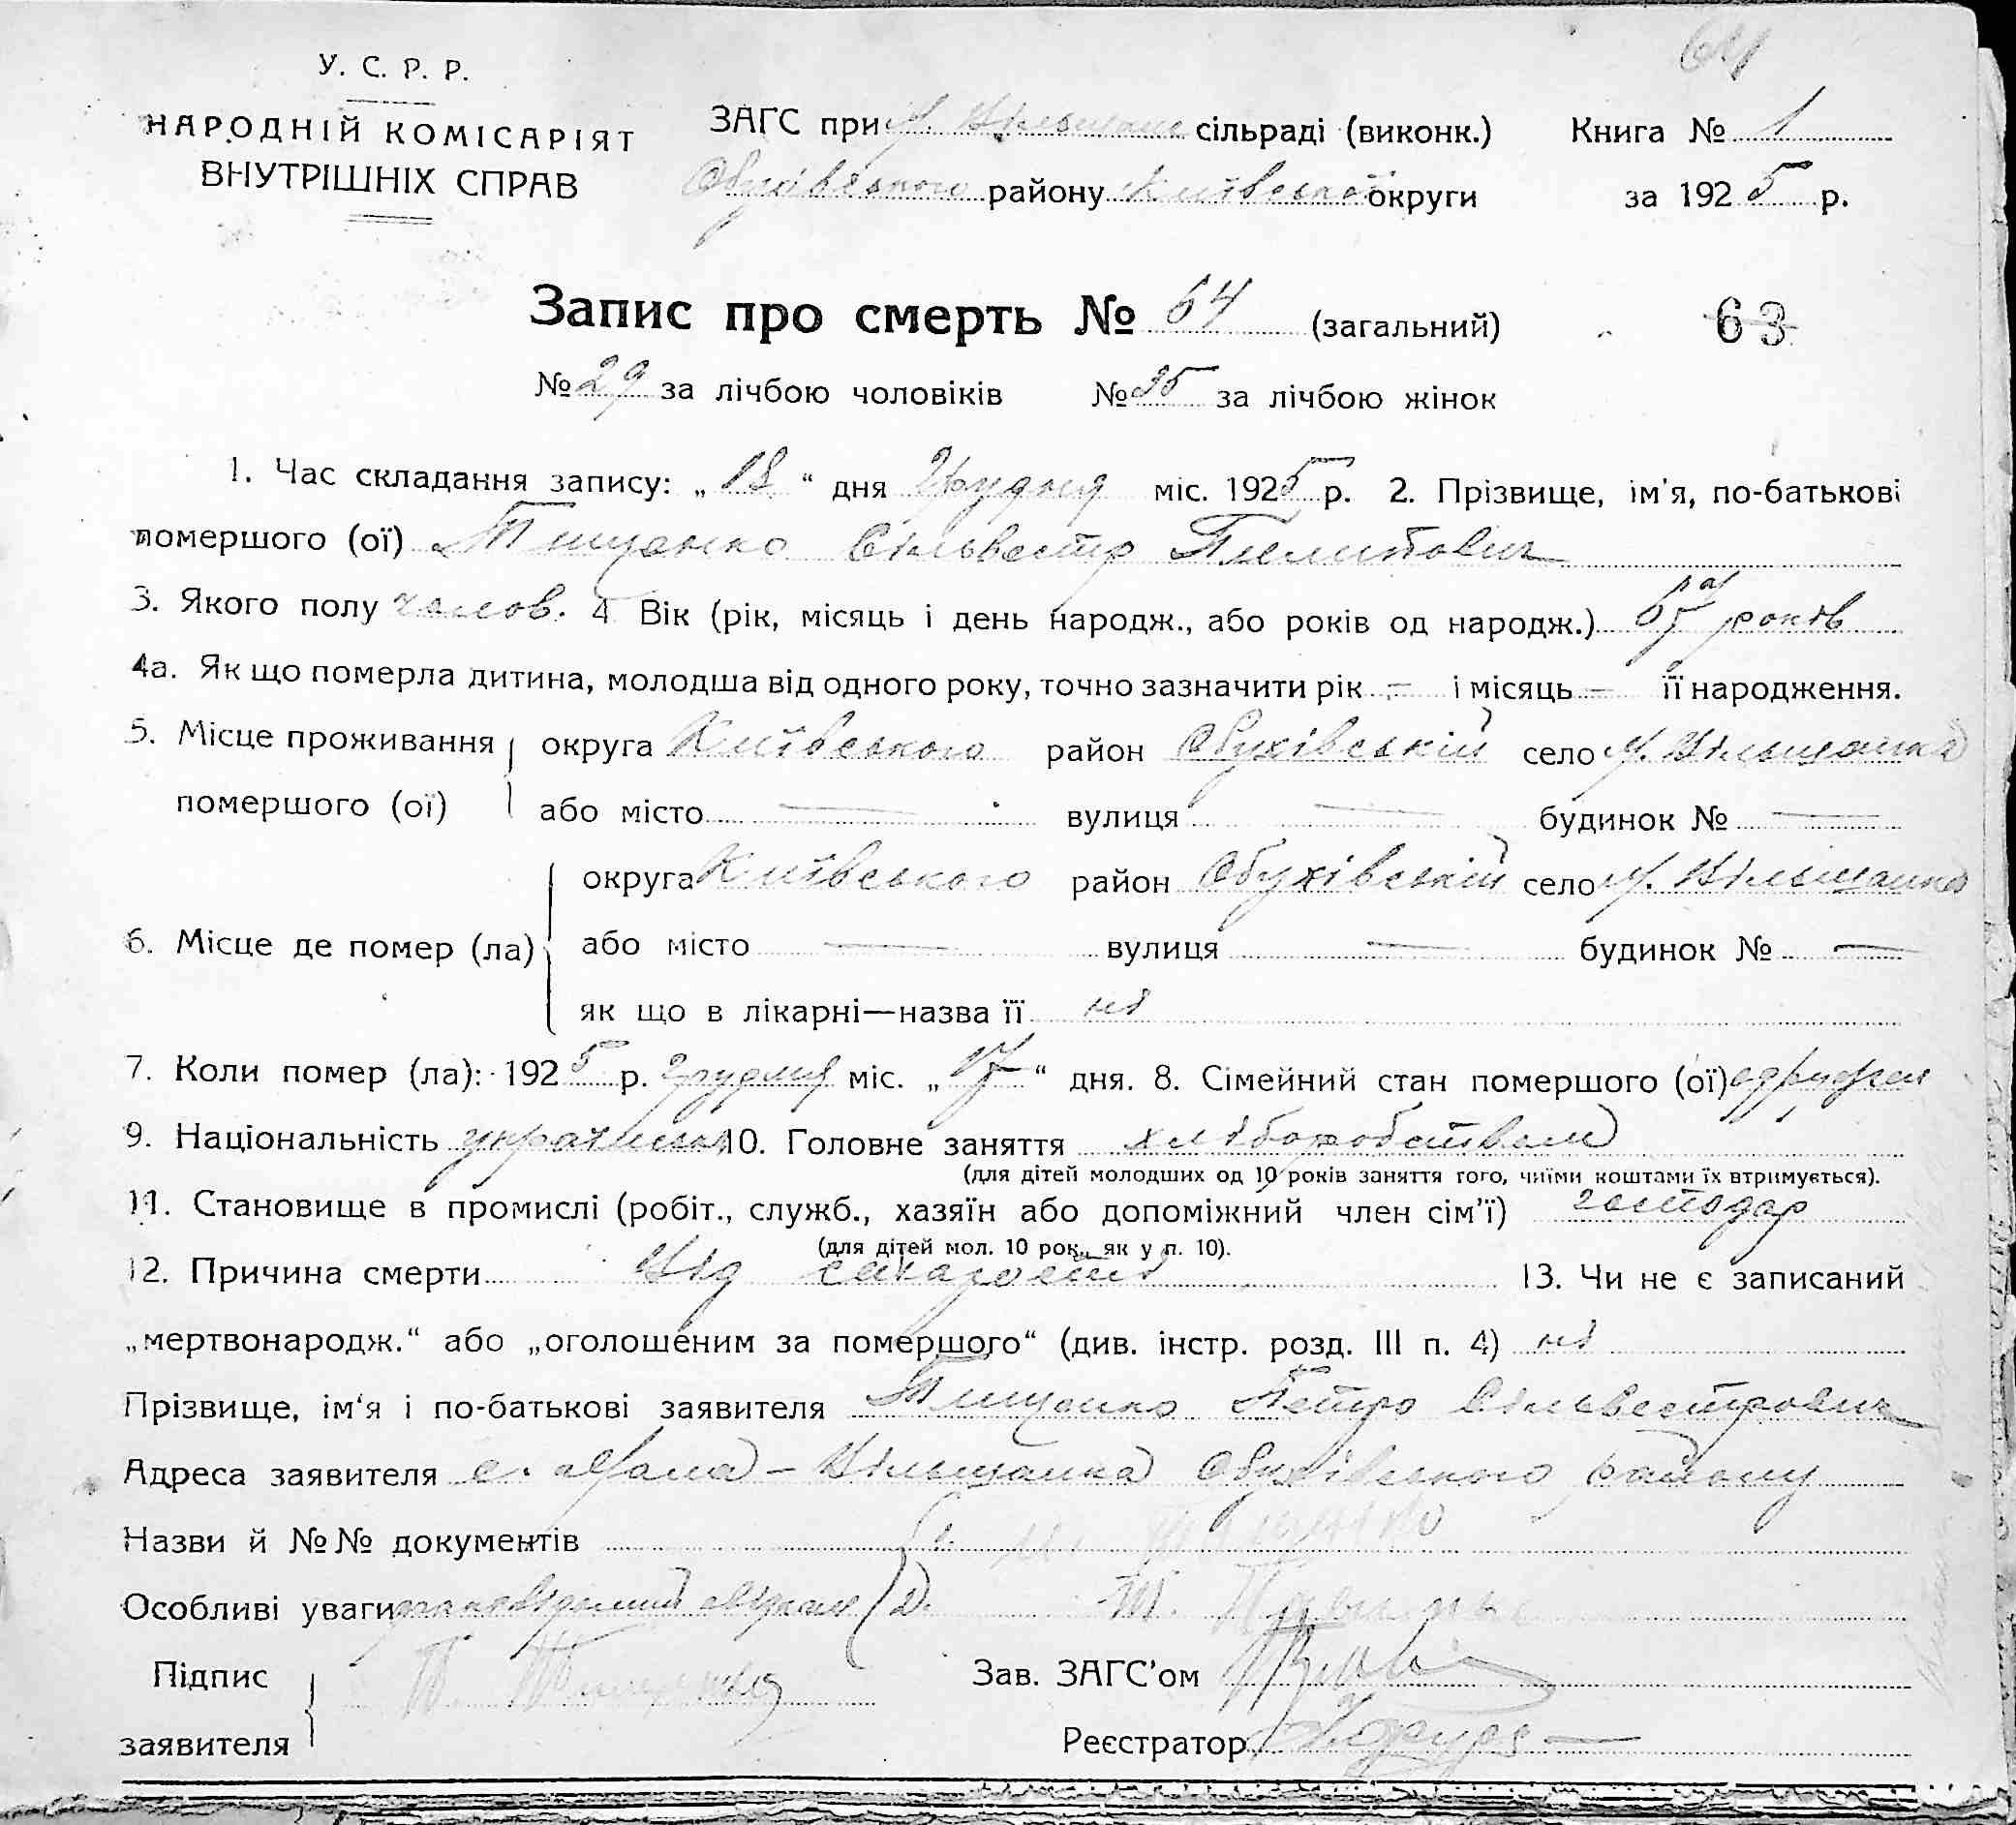 64
У. С. Р. Р.
НАРОДНІЙ КОМІСАРІЯТ
ВНУТРІШНІХ СПРАВ
ЗАГС при М. Вільшане сільраді (виконк.) Книга № 1
Обухівського району Київської округи за 1925 р.
Запис про смерть № 64 (загальний) 63
№ 29 за лічбою чоловіків № 35 за лічбою жінок
1. Час складання запису: „18“ дня Грудня міс. 1925 р. 2. Прізвище, ім'я, по-батькові
помершого (ої) Тищенко Сільвестр Пилипович
3. Якого полу чолов. 4 Вік (рік, місяць і день народж., або років од народж.) 65 років
4а. Як що померла дитина, молодша від одного року, точно зазначити рік – і місяць – її народження.
5. Місце проживання округа Київського район Обухівській село М. Вільщанка
помершого (ої) або місто — вулиця — будинок № —
округа Київського район Обухівській село М. Вільщанка
6. Місце де помер (ла) або місто — вулиця — будинок № —
як що в лікарні—назва її ні
7. Коли помер (ла): 1925 р. Грудня міс. „17“ дня. 8. Сімейний стан помершого (ої)
9. Національність 10. Головне заняття хліборобством
(для дітей молодших од 10 років заняття того, чиїми коштами їх втримується).
11. Становище в промислі (робіт., служб., хазяїн або допоміжний член сім'ї) господар
(для дітей мол. 10 рок., як у п. 10).
12. Причина смерти Від старости 13. Чи не є записаний
„мертвонародж.“ або „оголошеним за помершого“ (див. інстр. розд. III п. 4) ні
Прізвище, ім'я і по-батькові заявителя Тищенко Петро Сільвестрович
Адреса заявителя с. Мала – Вільщанка Обухівського району
Назви й №№ документів
Особливі уваги
Підпис Зав. ЗАГС'ом
заявителя П. Тищенко
Реєстратор